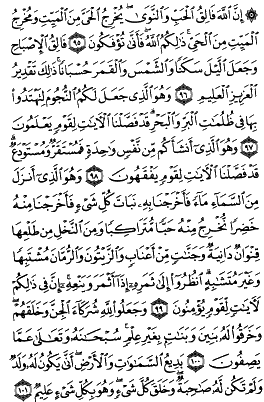 ۞ إِنَّ ٱللَّهَ فَالِقُ ٱلْحَبِّ وَٱلنَّوَىٰ يُخْرِجُ ٱلْحَىَّ مِنَ ٱلْمَيِّتِ وَمُخْرِجُ
ٱلْمَيِّتِ مِنَ ٱلْحَىِّ ذَٰلِكُمُ ٱللَّهُ فَأَنَّىٰ تُؤْفَكُونَ ٩٥ فَالِقُ ٱلْإِصْبَاحِ
وَجَعَلَ ٱلَّيْلَ سَكَنًا وَٱلشَّمْسَ وَٱلْقَمَرَ حُسْبَانًا ذَٰلِكَ تَقْدِيرُ
ٱلْعَزِيزِ ٱلْعَلِيمِ ٩٦ وَهُوَ ٱلَّذِى جَعَلَ لَكُمُ ٱلنُّجُومَ لِتَهْتَدُوا۟
بِهَا فِى ظُلُمَٰتِ ٱلْبَرِّ وَٱلْبَحْرِ قَدْ فَصَّلْنَا ٱلْءَايَٰتِ لِقَوْمٍ يَعْلَمُونَ
٩٧ وَهُوَ ٱلَّذِىٓ أَنشَأَكُم مِّن نَّفْسٍ وَٰحِدَةٍ فَمُسْتَقَرٌّ وَمُسْتَوْدَعٌ
قَدْ فَصَّلْنَا ٱلْءَايَٰتِ لِقَوْمٍ يَفْقَهُونَ ٩٨ وَهُوَ ٱلَّذِىٓ أَنزَلَ
مِنَ ٱلسَّمَآءِ مَآءً فَأَخْرَجْنَا بِهِۦ نَبَاتَ كُلِّ شَىْءٍ فَأَخْرَجْنَا مِنْهُ
خَضِرًا نُّخْرِجُ مِنْهُ حَبًّا مُّتَرَاكِبًا وَمِنَ ٱلنَّخْلِ مِن طَلْعِهَا
قِنْوَانٌ دَانِيَةٌ وَجَنَّٰتٍ مِّنْ أَعْنَابٍ وَٱلزَّيْتُونَ وَٱلرُّمَّانَ مُشْتَبِهًا
وَغَيْرَ مُتَشَٰبِهٍ ٱنظُرُوٓا۟ إِلَىٰ ثَمَرِهِۦٓ إِذَآ أَثْمَرَ وَيَنْعِهِۦٓ إِنَّ فِى ذَٰلِكُمْ
لَءَايَٰتٍ لِّقَوْمٍ يُؤْمِنُونَ ٩٩ وَجَعَلُوا۟ لِلَّهِ شُرَكَآءَ ٱلْجِنَّ وَخَلَقَهُمْ
وَخَرَقُوا۟ لَهُۥ بَنِينَ وَبَنَٰتٍۭ بِغَيْرِ عِلْمٍ سُبْحَٰنَهُۥ وَتَعَٰلَىٰ عَمَّا
يَصِفُونَ ١٠٠ بَدِيعُ ٱلسَّمَٰوَٰتِ وَٱلْأَرْضِ أَنَّىٰ يَكُونُ لَهُۥ وَلَدٌ
وَلَمْ تَكُن لَّهُۥ صَٰحِبَةٌ وَخَلَقَ كُلَّ شَىْءٍ وَهُوَ بِكُلِّ شَىْءٍ عَلِيمٌ ١٠١